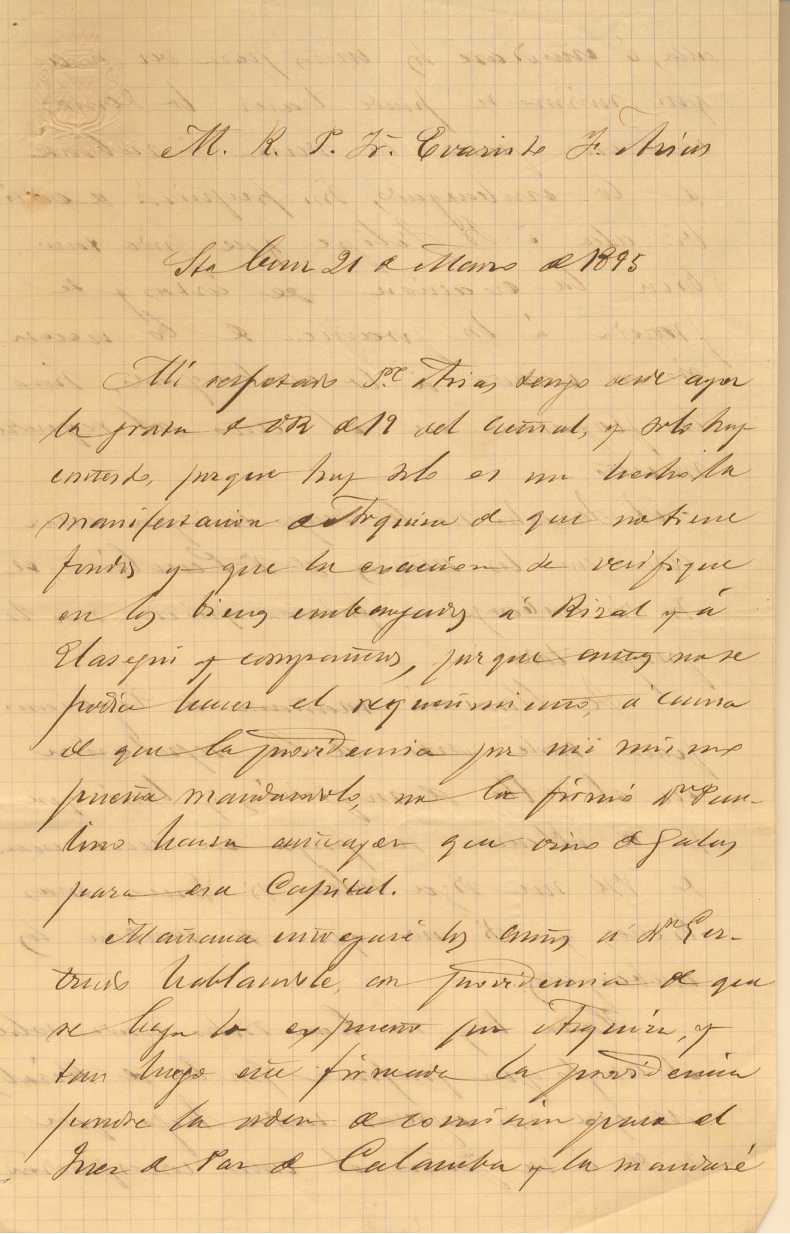 M. R. P. Fr. Evaristo F. Arias
Sta Cruz 21 de Marzo de 1895
Mi respetado Pe. Arias, tengo desde ayer
la grata de VR de 19 del actual, y solo hoy
contesto, porque hoy solo es un hecho la
manifestacion de Arquiza de que no tiene
fondos y que la exaccion se verifique
en los bienes embargados á Rizal y á
Elasegui y compañeros, porque antes no se
podia hacer el requerimiento, á causa
de que la providencia por mi mismo
puesta mandandolo, no la firmó Dn Pau-
lino hasta anteayer que vino de Galas
para esa Capital.
Mañana entregaré los autos á Dn Ger-
trudis hablandole, con providencia de que
se haga lo expuesto por Arquiza, y
tan luego esté firmada la providencia
pondré la orden de comision para el
Juez de Paz de Calamba y la mandaré